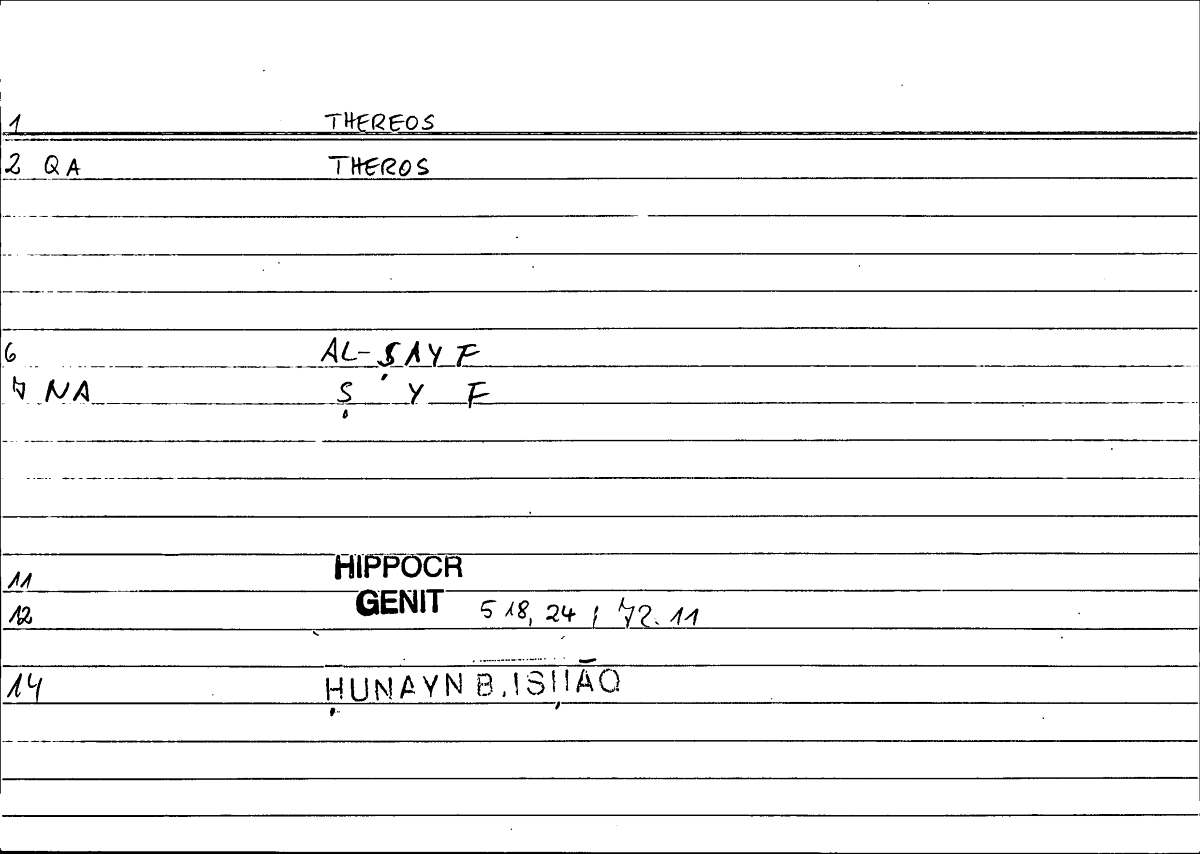 1 THEREOS
2 QA THEROS
6 AL-ṢAYF
7 NA Ṣ Y F
11 HIPPOCR
12 GENIT 518, 24 ; 72.11
14 ḤUNAYN B. ISḤĀQ